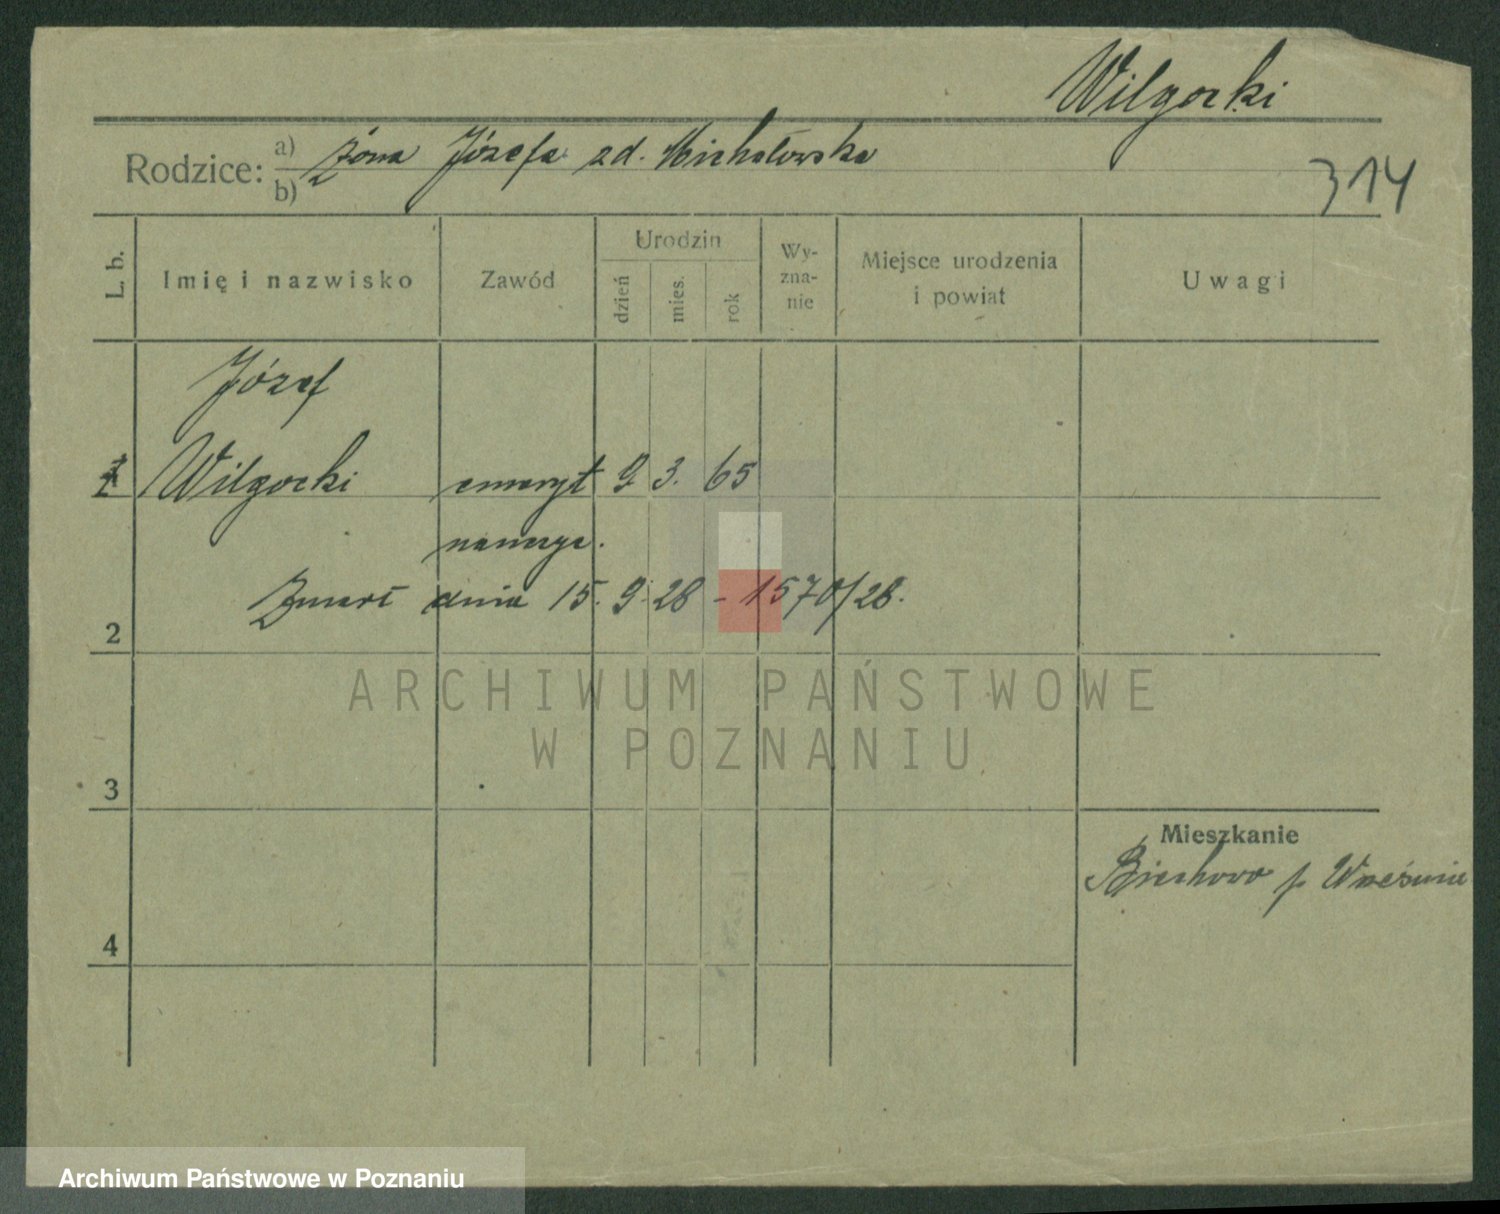 Wilgocki
Rodzice: a) żona Józefa zd. Michałowska
b)
314
L. b.
Imię i nazwisko
Zawód
Urodzin
dzień
mies.
rok
Wy-
zna-
nie
Miejsce urodzenia
i powiat
Uwagi
Józef
1 Wilgocki emeryt 9 3. 65
naucz.
Zmarł dnia 15. 9. 28 - 1570/28.
2
ARCHIWUM PAŃSTWOWE
W POZNANIU
3
Mieszkanie
Biechowo p. Września
4
Archiwum Państwowe w Poznaniu